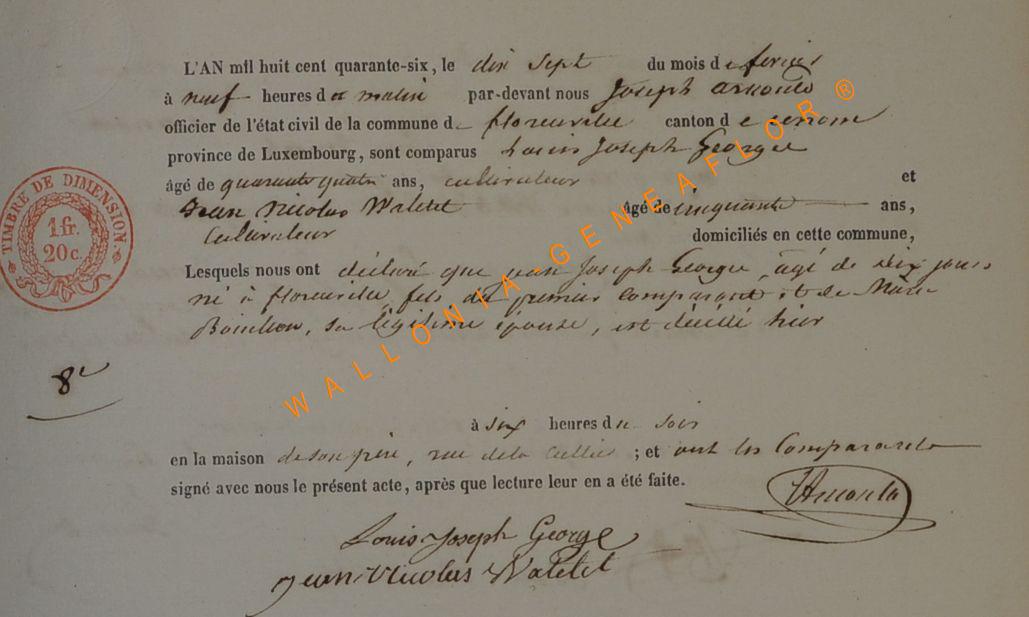 L'AN mil huit cent quarante-six, le dix sept du mois de fevrier
à neuf heures du matin par-devant nous Joseph Arnould
officier de l'état civil de la commune de florenville canton de
province de Luxembourg, sont comparus Louis Joseph George
âgé de quarante quatre ans, cultivateur et
Jean Nicolas Watelet âgé de cinquante ans,
Cultivateur domiciliés en cette commune,
Lesquels nous ont déclaré que jean Joseph George, agé de dix jours
né à florenville, fils du premier comparant et de Marie
sa légitime épouse, est décédé hier
8e
à six heures du soir
en la maison de son père, rue de la ; et ont les Comparants
signé avec nous le présent acte, après que lecture leur en a été faite.
JArnould
Louis Joseph George
Jean Nicolas Watelet
TIMBRE DE DIMENSION
1 fr.
20 c.
WALLONIA-GENEAFLOR ®